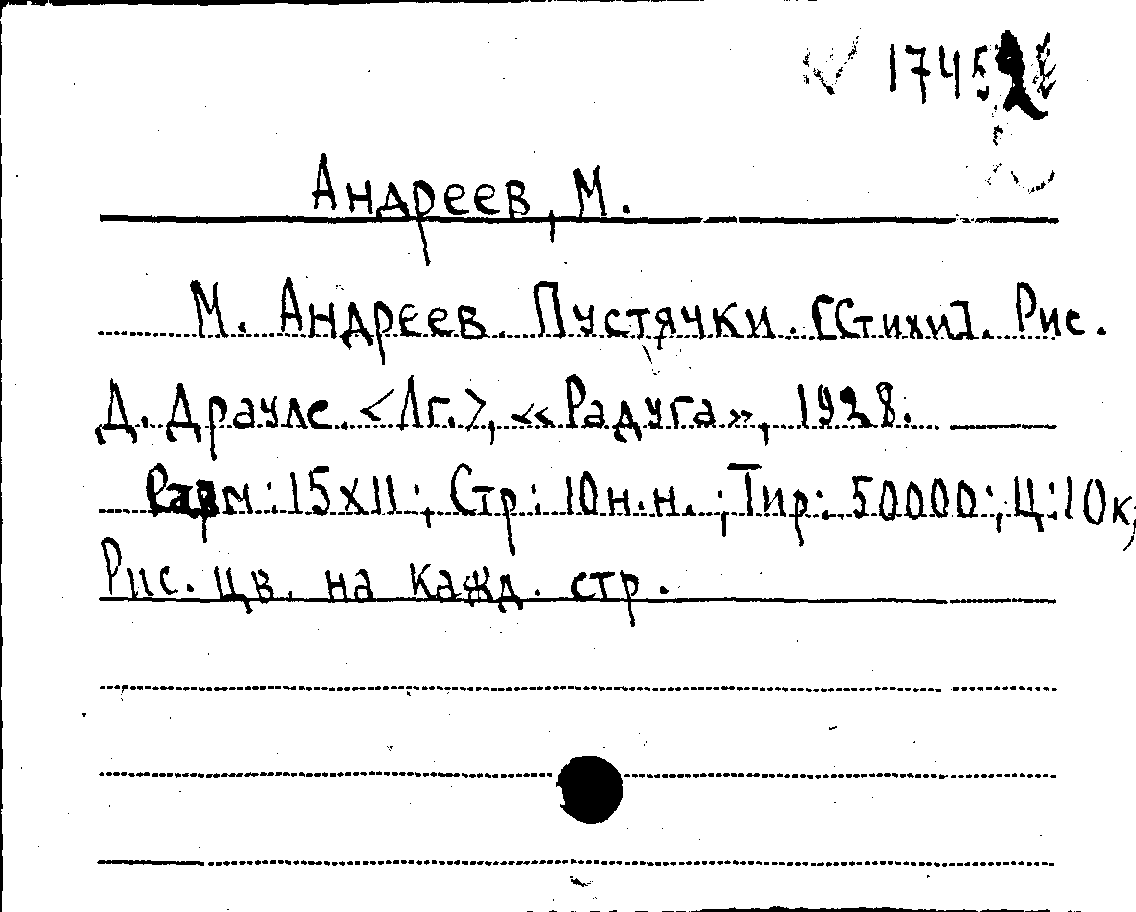 17452
Андреев, М.
М. Андреев. Пустячки. [Стихи]. Рис.
Д. Драуле. <Лг.>, «Радуга», 1928.
Разм: 15х11; Стр: 10н.н.; Тир: 50000; Ц:10к;
Рис. цв. на кажд. стр.